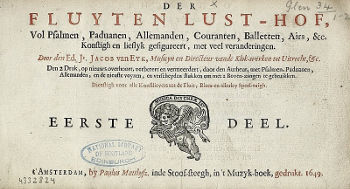 Glen 34
DER
FLUYTEN LUST-HOF,
Vol Psalmen, Paduanen, Allemanden, Couranten, Balletten, Airs, &c.
Konstigh en lieflyk gefigureert, met veel veranderingen.
Door den Ed. Jr. JACOB van EYK, Musicyn en Directeur vande Klok-werken tot Uitrecht, &c.
Den 2 Druk, op nieuws overhoort, verbetert en vermeerdert, door den Autheur, met Psalmen, Paduanen,
Allemanden, en de nieuste voysen, en verscheyden stukken om met 2 Boven-zangen te gebruiken.
Dienstigh voor alle Konst-lievers tot de Fluit, Blaes en allerley Speel-tuigh.
EERSTE DEEL.
NATIONAL LIBRARY
OF SCOTLAND
EDINBURGH
t'AMSTERDAM, by Paulus Matthysz. inde Stoof-steegh, in 't Muzyk-boek, gedrukt. 1649.